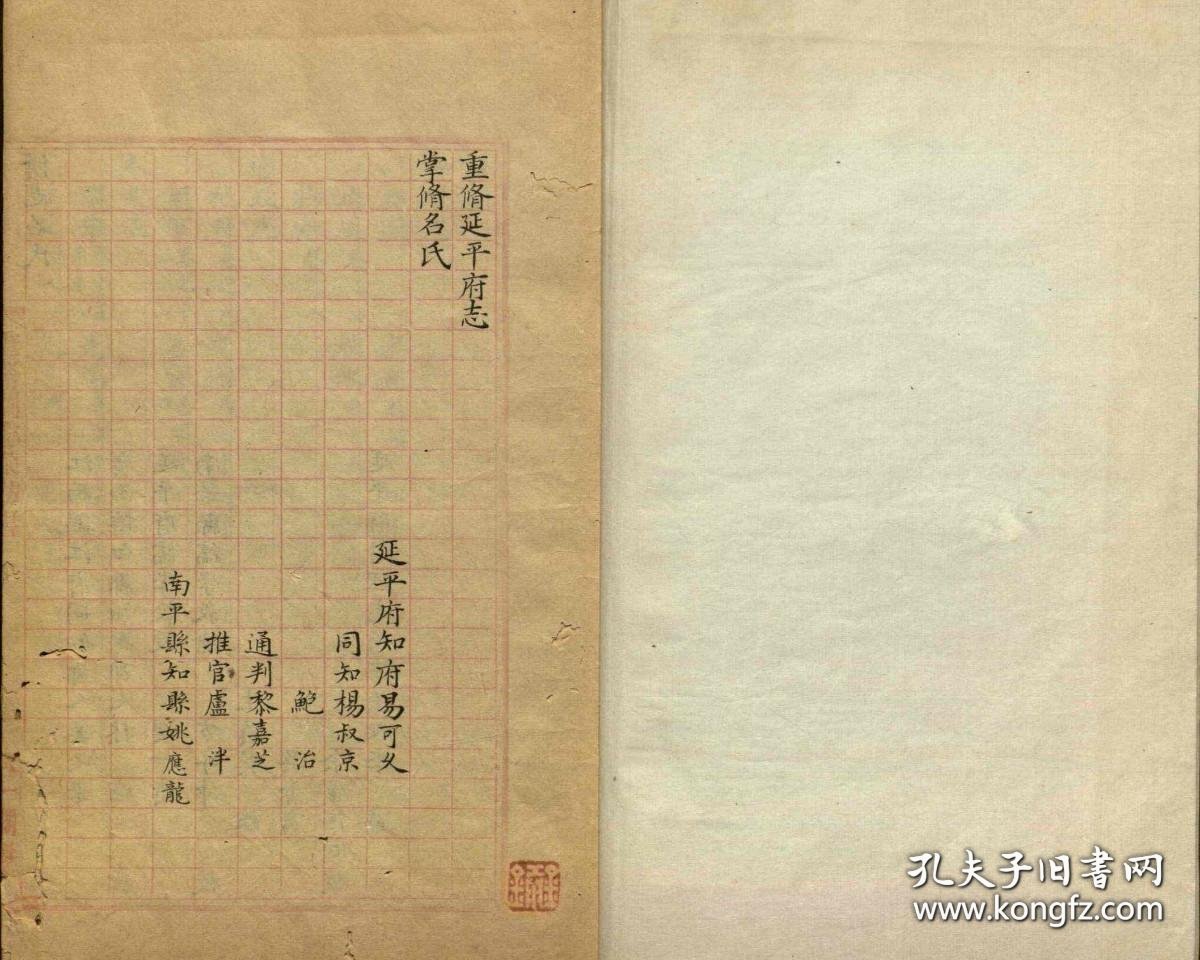 重脩延平府志
掌脩名氏
延平府知府易可久
同知楊叔京
鮑治
通判黎嘉芝
推官盧泮
南平縣知縣姚應龍
孔夫子旧书网
www.kongfz.com